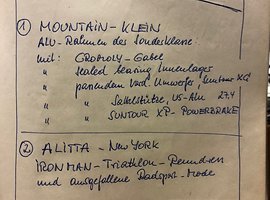 ① MOUNTAIN - KLEIN
ALU-Rahmen der Sonderklasse
mit: CROMOLY-Gabel
" sealed bearing Innenlager
" passendem Vord. Umwerfer, Suntour XC
" " Sattelstütze, US-Alu 27,4
" SUNTOUR XP-POWERBRAKE
② ALITTA - NEW YORK
IRONMAN-Triathlon-Renndress
und ausgefallene Radsport-Mode